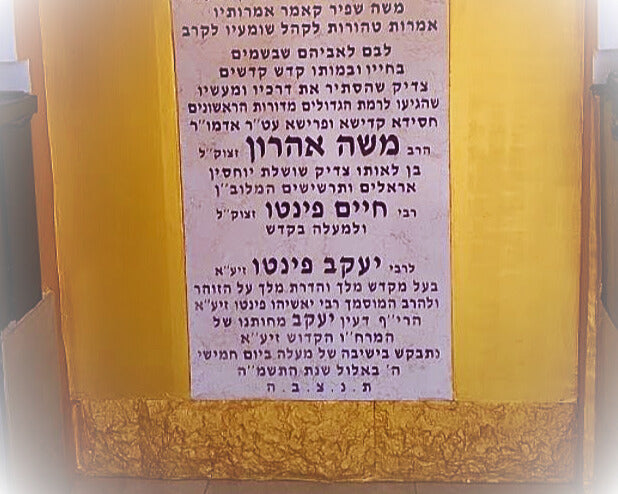 משה שפיר קאמר אמרותיו
אמרות טהורות לקהל שומעיו לקרב
לבם לאביהם שבשמים
בחייו ובמותו קדש קדשים
צדיק שהסתיר את דרכיו ומעשיו
שהגיעו לרמת הגדולים מדורות הראשונים
חסידא קדישא ופרישא עט״ר אדמו״ר
הרב משה אהרון זצוק״ל
בן לאותו צדיק שושלת יוחסין
אראלים ותרשישים המלוב״ן
רבי חיים פינטו זצוק״ל
ולמעלה בקדש
לרבי יעקב פינטו זיע״א
בעל מקדש מלך והדרת מלך על הזוהר
ולהרב המוסמך רבי יאשיהו פינטו זיע״א
הרי״ף דעין יעקב מחותנו של
המרח״ו הקדוש זיע״א
נתבקש בישיבה של מעלה ביום חמישי
ה' באלול שנת התשמ״ה
ת.נ.צ.ב.ה